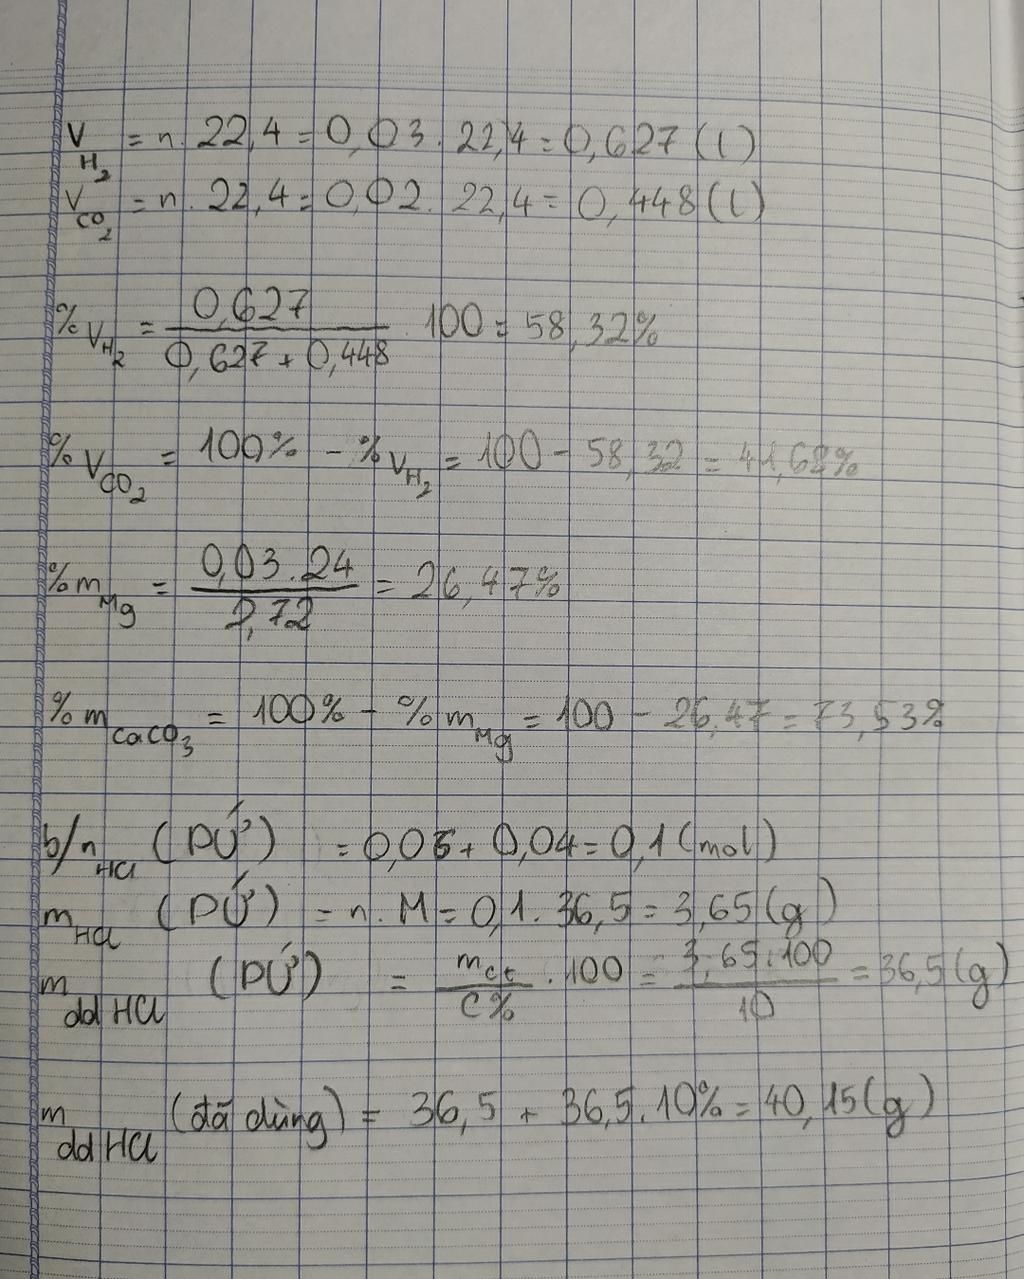 V_H₂ = n. 22,4 = 0,03. 22,4 = 0,627 (l)
V_CO₂ = n. 22,4 = 0,02. 22,4 = 0,448 (l)
%V_H₂ = 0,627 / (0,627 + 0,448) . 100 = 58,32%
%V_CO₂ = 100% - %V_H₂ = 100 - 58,32 = 41,68%
%m_Mg = (0,03.24) / 2,72 = 26,47%
%m_CaCO₃ = 100% - %m_Mg = 100 - 26,47 = 73,53%
b/ n_HCl (PỨ) = 0,06 + 0,04 = 0,1 (mol)
m_HCl (PỨ) = n. M = 0,1. 36,5 = 3,65 (g)
m_dd HCl (PỨ) = m_ct / C% . 100 = (3,65.100) / 10 = 36,5 (g)
m_dd HCl (đã dùng) = 36,5 + 36,5.10% = 40,15 (g)